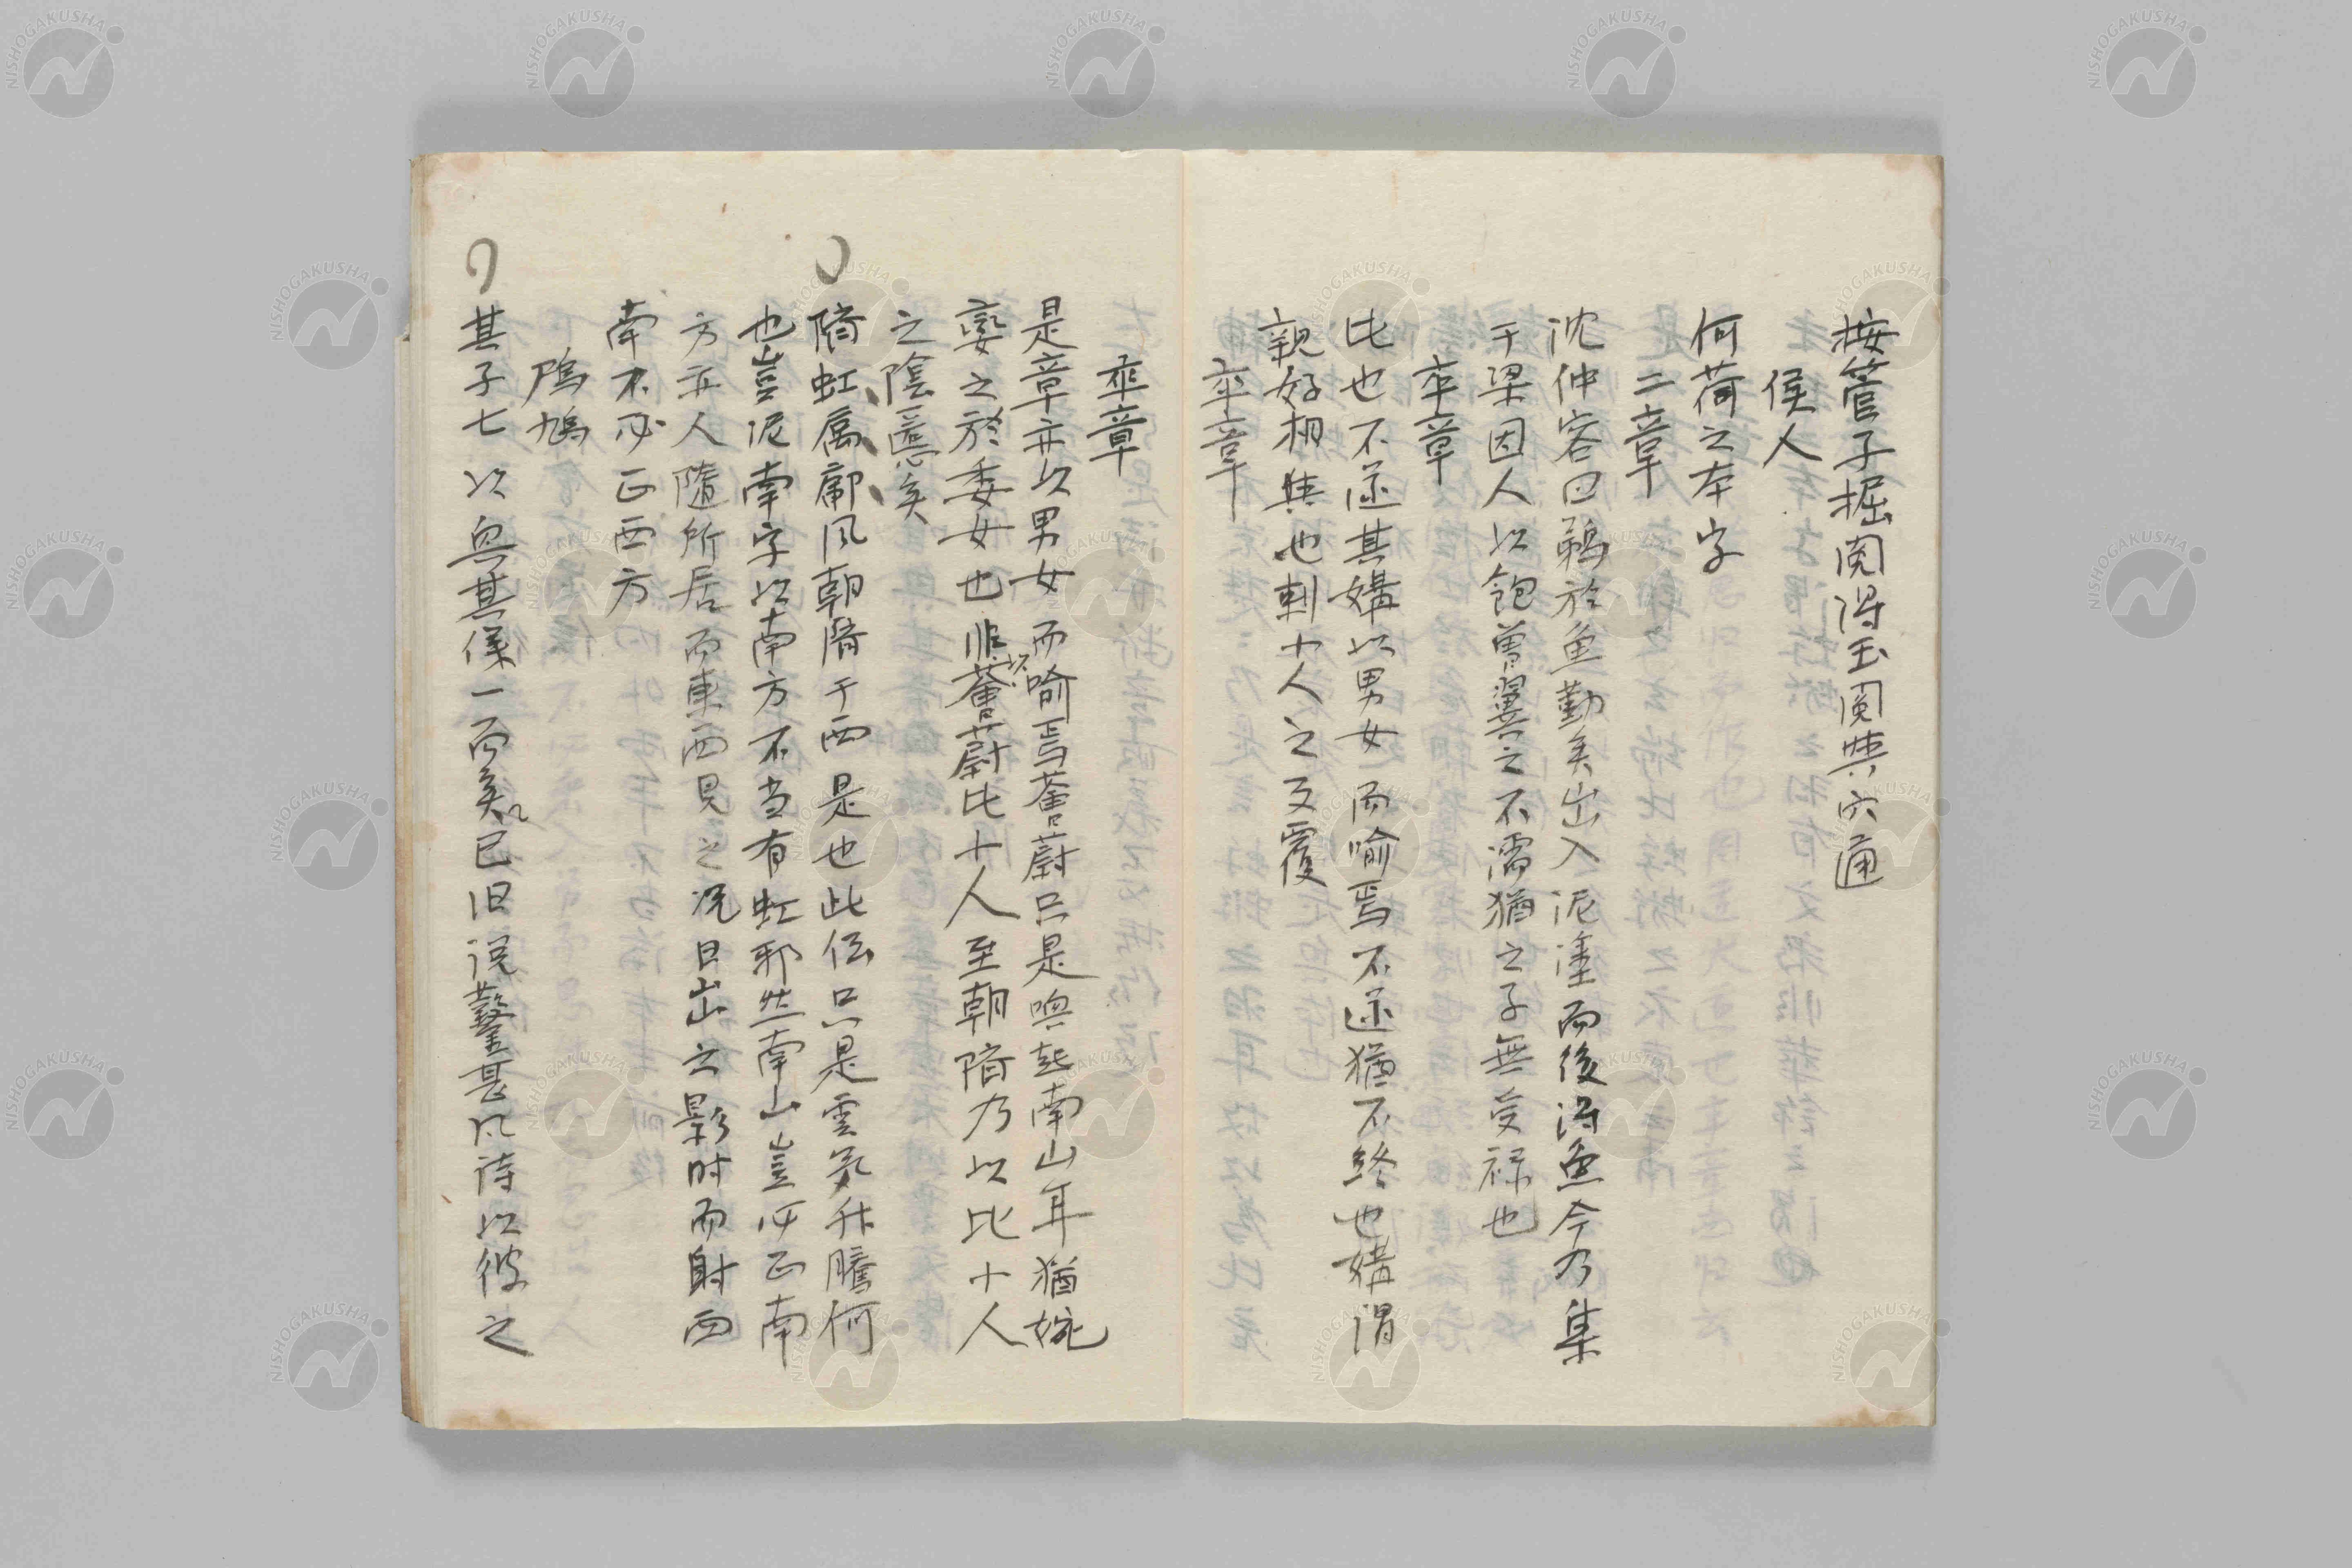 按管子掘閲得玉閲与穴通
侯人
何荷之本字
二章
沈仲容曰鵜於魚勤矣出入泥塗而後得魚今乃集
于梁因人以飽曽翼之不濡猶之子無受禄也
卒章
比也不遂其媾以男女而喻焉不遂猶不終也媾謂
親好相與也刺小人之反覆
卒章
卒章
是章亦以男女而喻焉薈蔚只是興起南山耳猶婉
孌之於委女也非以薈蔚比小人至朝隮乃以比小人
之陰慝矣
隮虹属鄘風朝隮于西是也此伝只是雲気升騰何
也豈泥南字以南方不当有虹耶然南山豈必正南
方亦人随所居而東西見之况日出之影時而射西
南不必正西方
鳲鳩
其子七以興其儀一而矣已旧説鑿甚凡詩以彼之
NISHOGAKUSHA